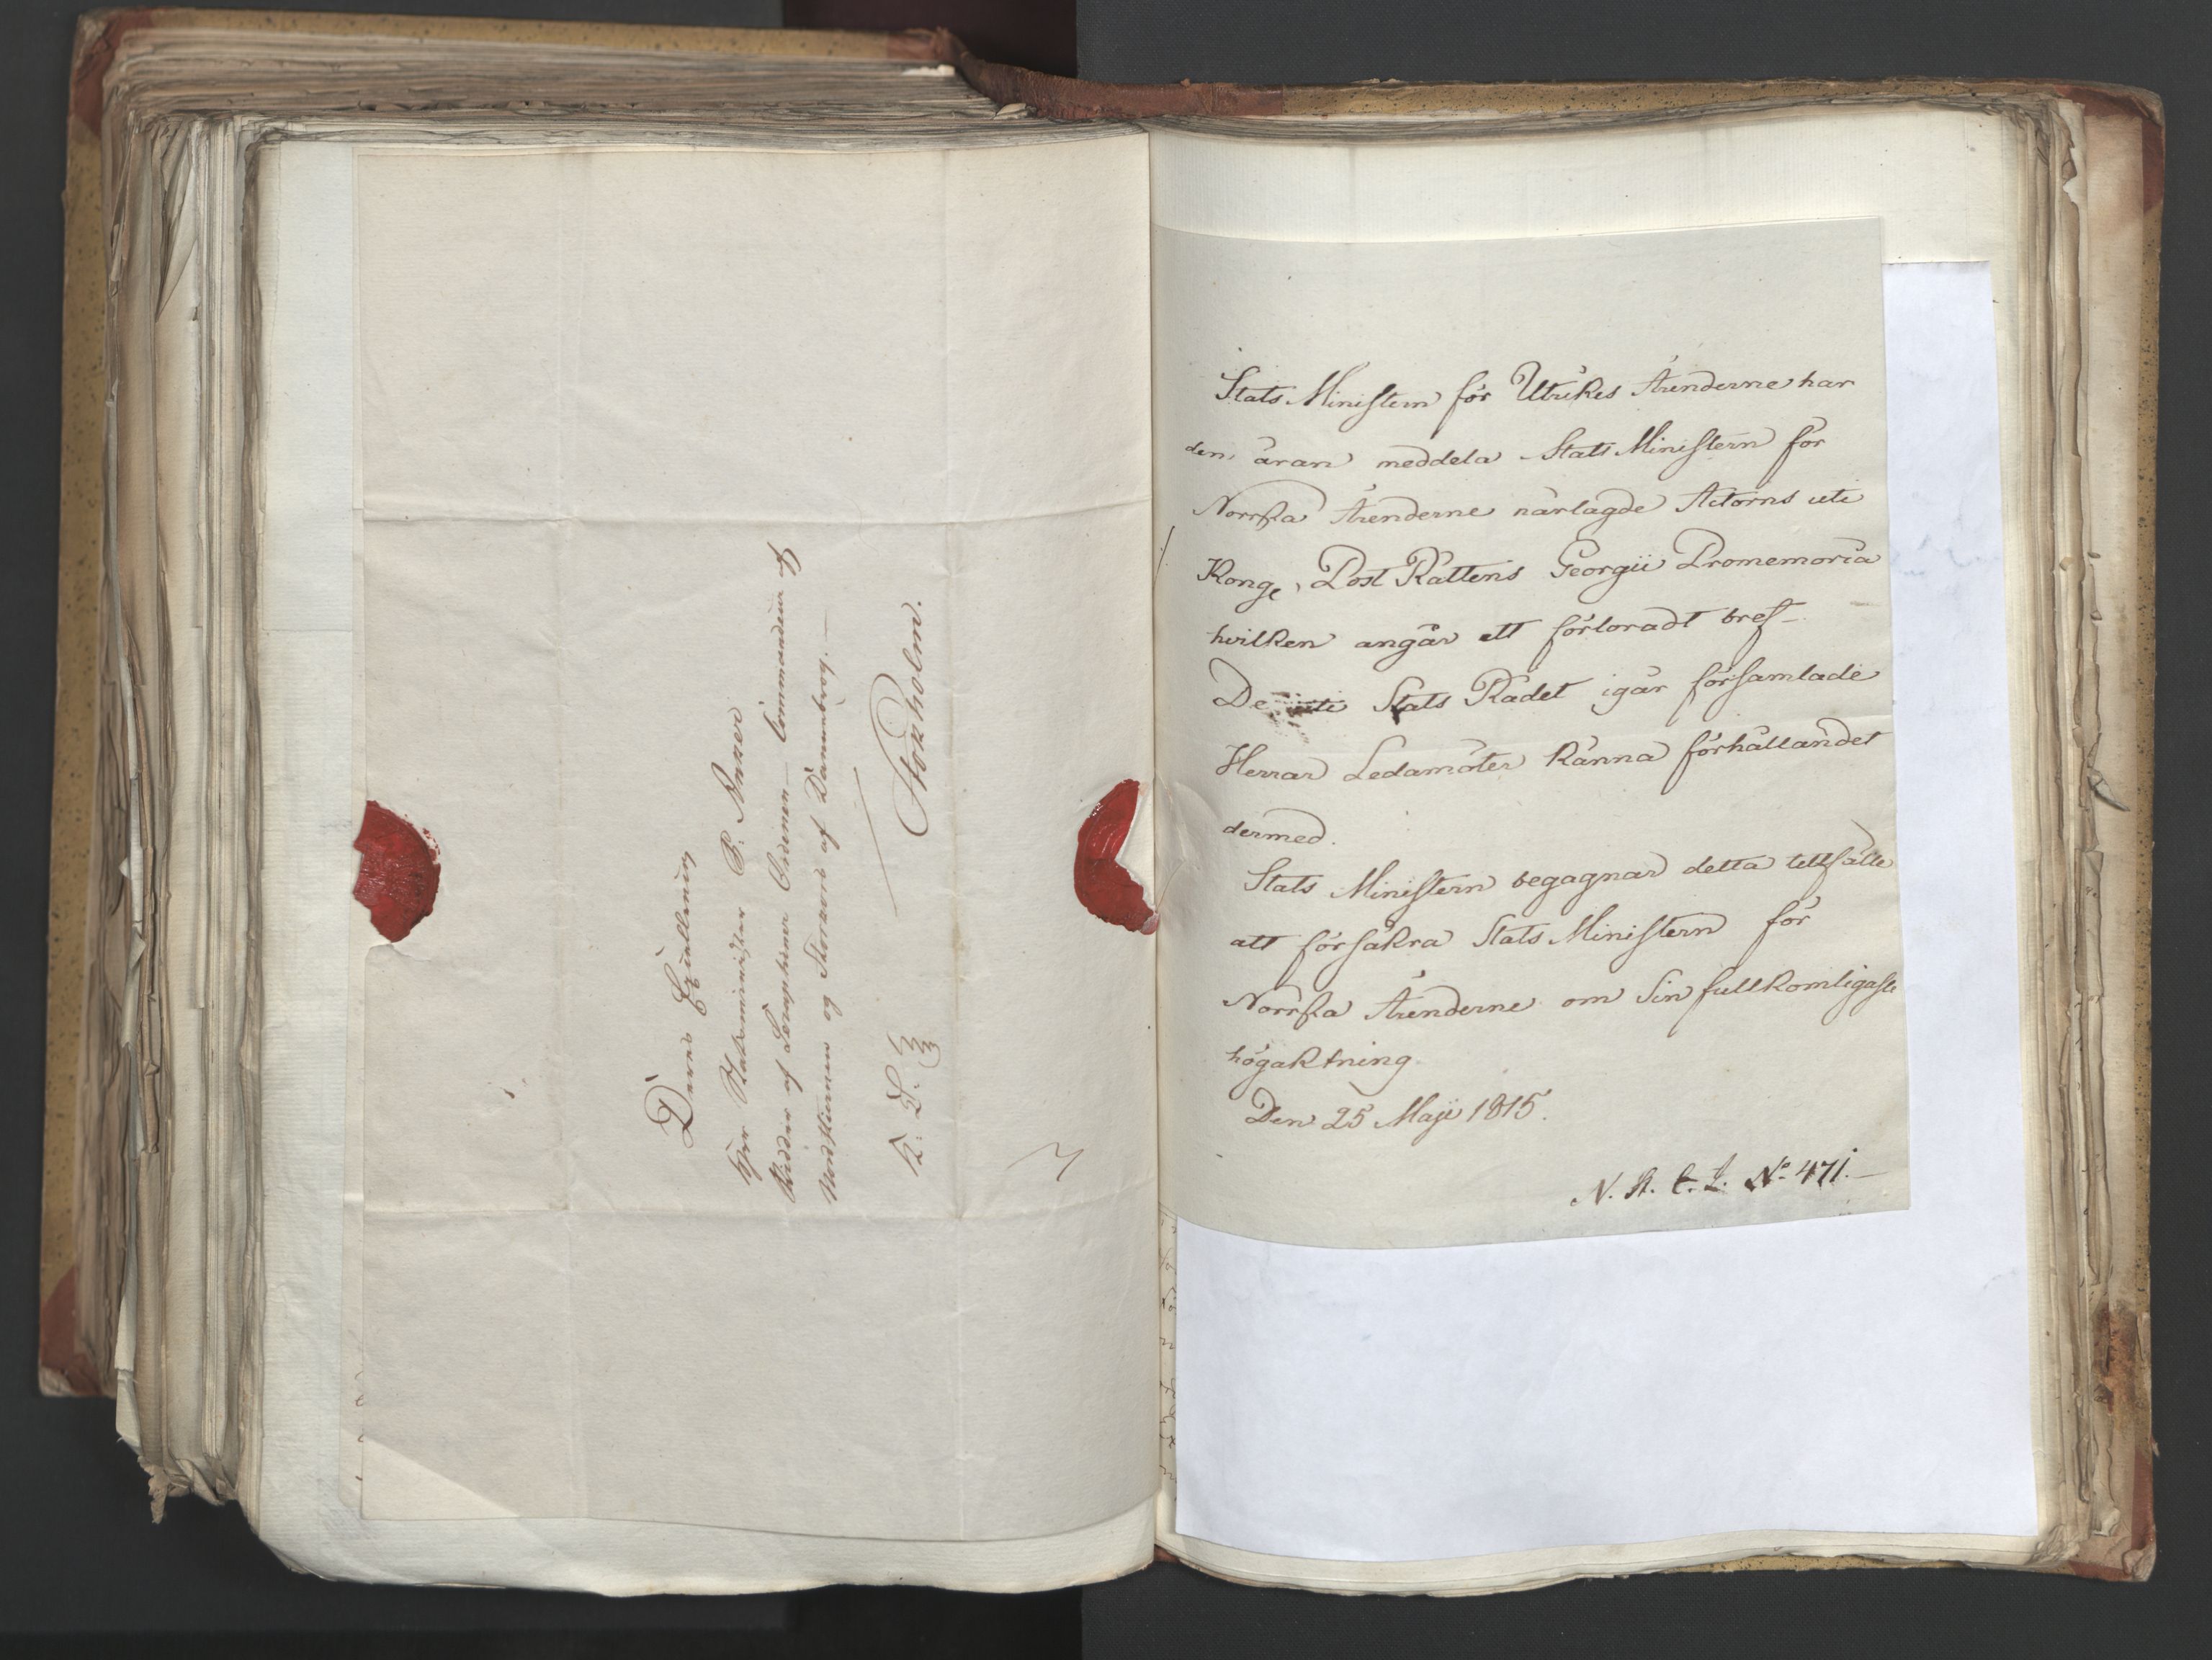 Deres Excellence
Herr Statsminister P. Anker
Ridder af Seraphimer Ordenen – Commandeur af
Nordstiernen og Storkors af Dannembrog. –
Stokholm.
K: T.
Stats Ministern för Utrikes Ärenderne har
den äran meddela Stats Ministern för
Norrska Ärenderne närlagde Actorns uti
Kong. Post Rättens Georgii Promemoria
hvilken angår ett förloradt bref –
De uti Stats Rådet igår församlade
Herrar Ledamöter känna förhållandet
dermed.
Stats Ministern begagnar detta tillfälle
att försäkra Stats Ministern för
Norrska Ärenderne om Sin fullkomligaste
högaktning.
Den 25 Maji 1815.
N. A. C. L. No. 471. –